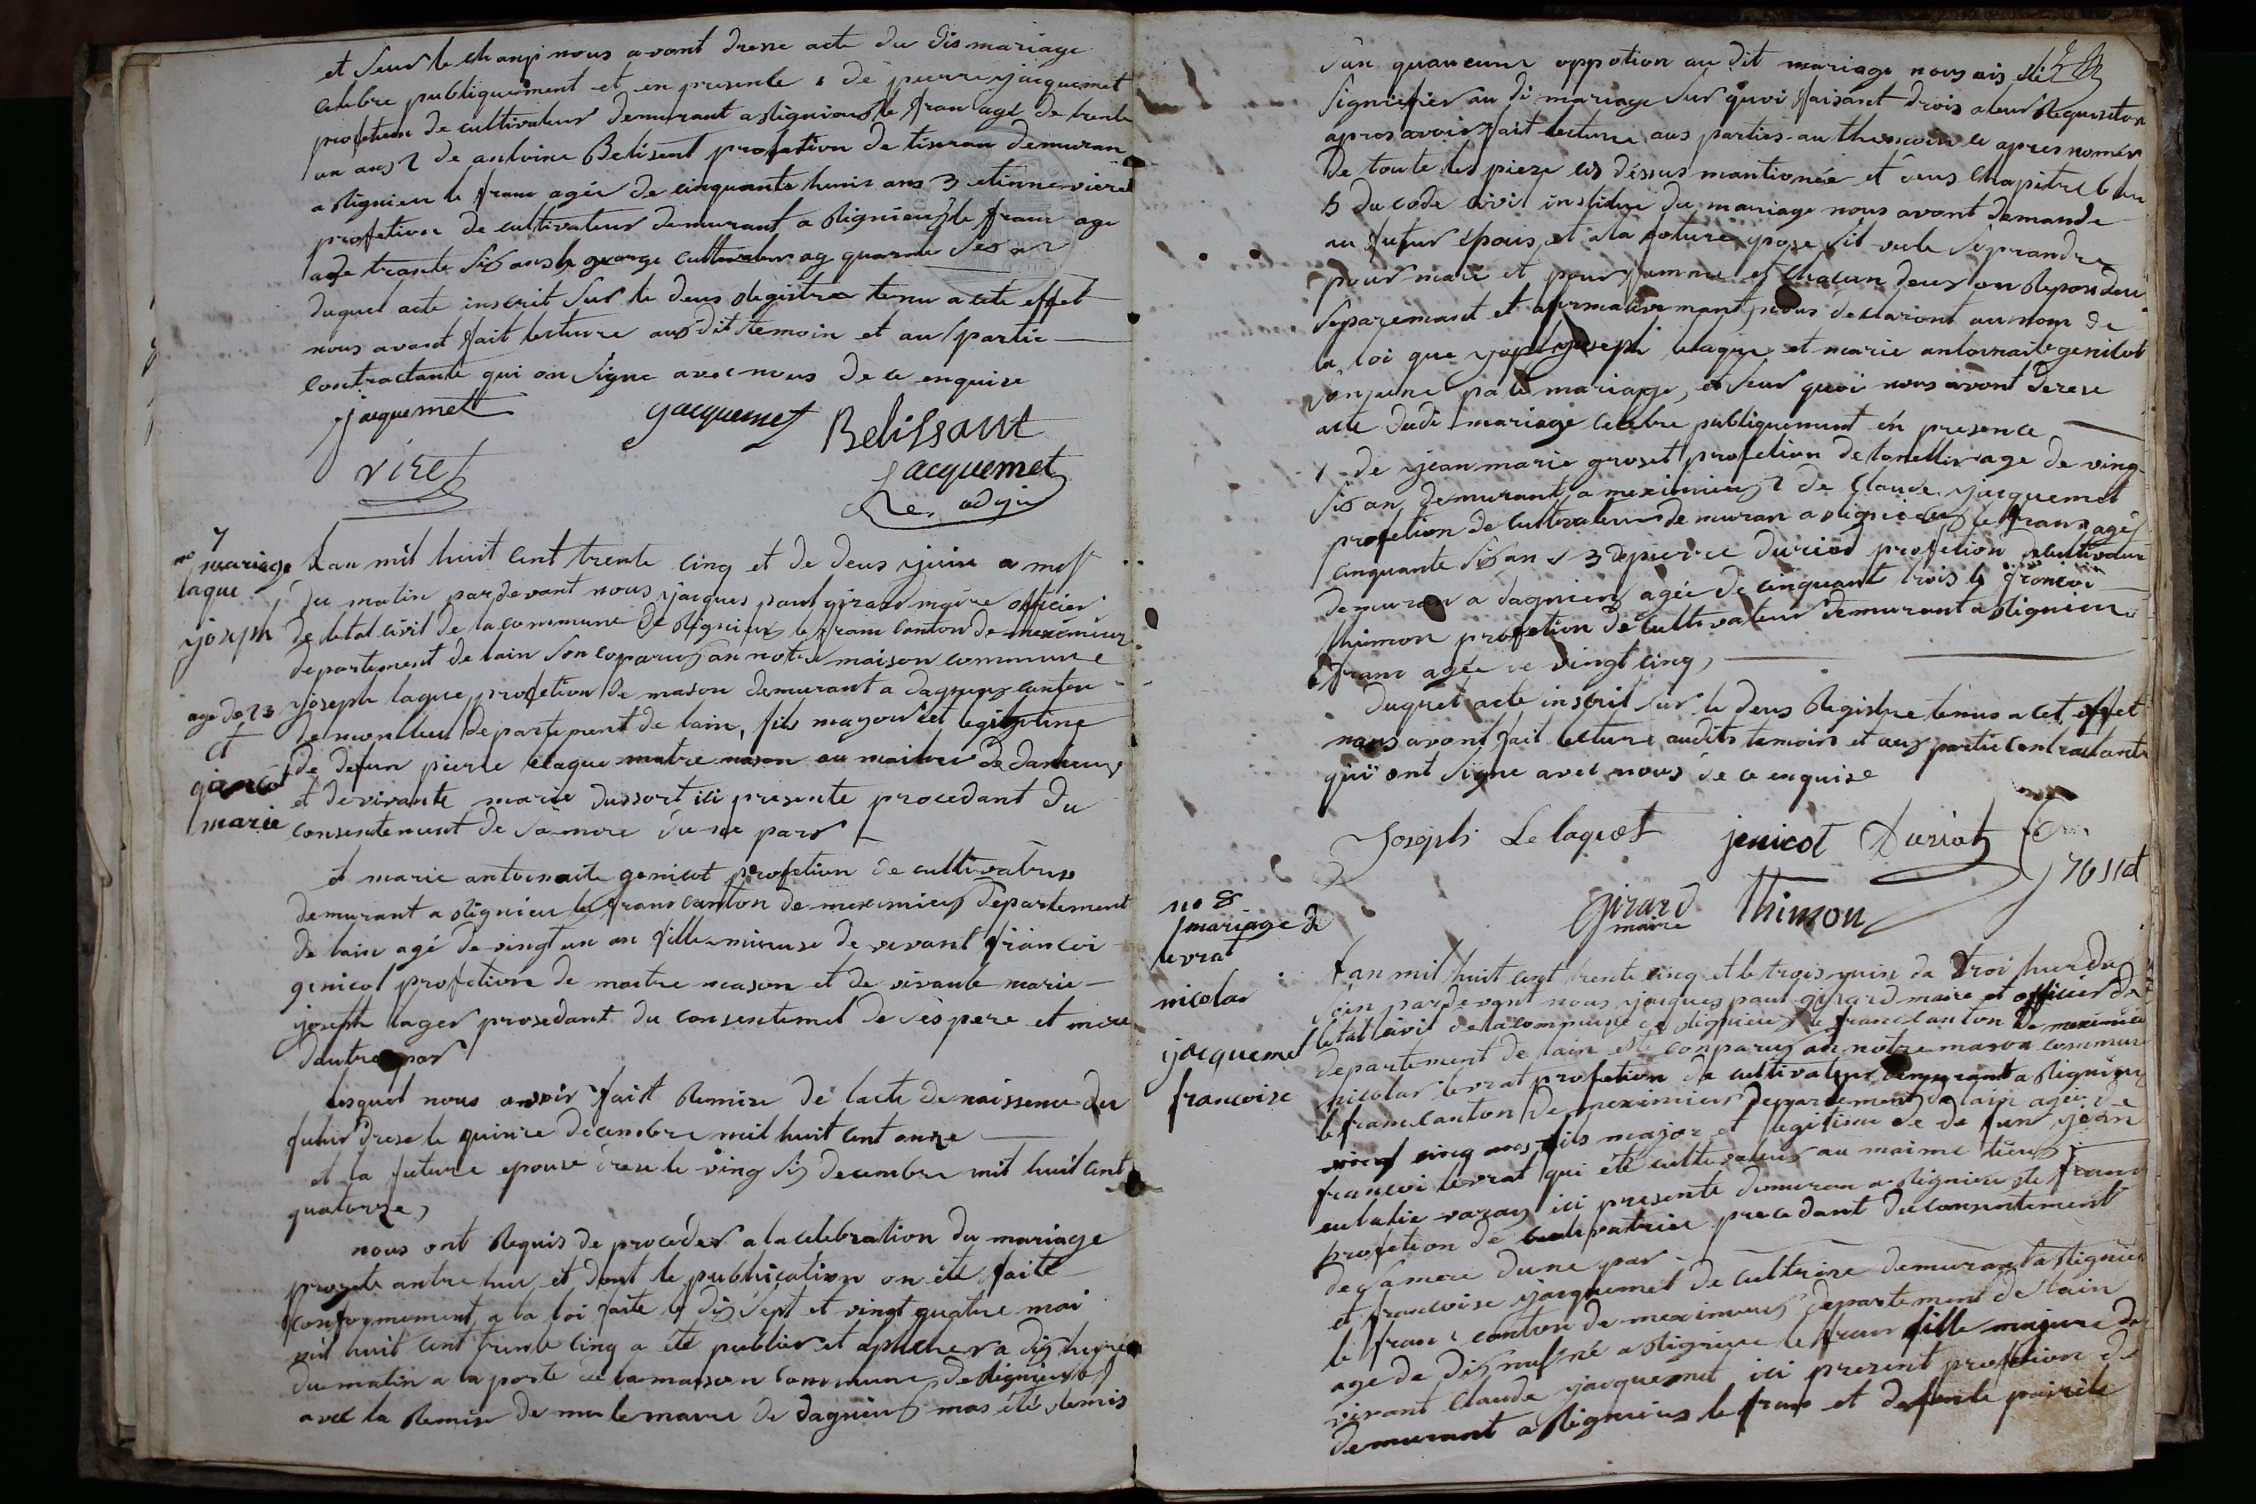 et seur le champ nous avont dresse acte du dis mariage
celebre publiquement et en presente 1 de pierre jacquemet
profetion de cultivateur demurant a Rignieux le fran agé de trente
un ans 2 de antoine Belisent profetion de tiseran demuran
a Rignieu le franc agée de cinquante hunis ans 3 etienne viret
profetion de cultivateur demurant a Rignieux le franc age
age trante sis ans 4 george cultivateur ag quarente ses an
duquel acte inscrit sur le deus Registre tenu a cete effet
nous avont fait lecture aus dit temoin et au partie
contractante qui on signe avec nous de ce enquise
jacquemet jacquemet Belissant
viret Jacquemet
adjoin
no 7
mariage
laque
joseph
age de 23
et
genicot
marie
Lan mil huit cent trente cinq et de deus juin a
du matin pardevant nous jacques paul girard maire officier
de letat civil de la commune de Rignieux le franc canton de meximieux
departement de lain son coparus an notre maison commune
joseph laque profetion de mason demurant a dagnieux canton
de monlluel departement de lain, fils mayour et legitime
de defun pierre laque maitre mason au maime de danieux
et devivante marie dussort ici presente procedant du
consentement de sa mere dune part
et marie antoinaite genicot profetion de cultivatrise
demurant a Rignieu le franc canton de meximieux departement
de lain agé de vingt un an fille mineure de vivant françoi
genicot profetion de maitre mason et de vivante marie
joseph lager prosedant du consentemet de ses pere et mere
dautre par
lesquel nous avoir fait Remise de lacte de naissence du
futur drese le quinze decembre mil huit cent onze
et la future epouse drese le ving sis decembre mil huit cent
quatorze,
nous ont Requis de proceder a la celebration du mariage
progete antre heu et dont le publication on été faite
conformement a la loi faite le dis sept et vingt quatre mai
mil huit cent trente cinq a été publier et aficher a dis hure
du matin a la porte de la maison commune de Rignieux
avec la Remise de mr le maire de dagnieux mas été remis
san quaucune oppotion au dit mariage nous ais été
signiefier au di mariage sur quoi faisant drois a leur Requisition
apres avoir fait lecture aus parties au themoin ci apres nomer
de toute les pieze ci dessus mantionée et deus chapitre 6 du
5 du code civil institue du mariage nous avont demande
au futur epous et a la future epose sil veule se prandre
pour marie et pour famme et chacun deus on Repondu
separemant et afirmativemant, nous declaront au nom de
la loi que joseph laque et marie antoinaite genicot
son june pa le mariage, et seur quoi nous avont derese
acte dudi mariage celebre publiquement én presence
1 de jean marie groset profetion de tonellier age de ving
sis an demurant a meximieux 2 de Claude jacquemet
profetion de cultivateur demuran a Rignieux le franc agé
cinquante sis an 3 de pierre duriat profetion de cultivateur
demuran a dagnieu agée de cinquant trois 4 françoi
thimon profetion de cultivateur demurant a Rignieu
franc agée de vingt cinq,
duquel acte inscrit sur le deus Registre tenus a cet effet
nous avont fait lecture audits temoins et aus partie contractante
qui ont signe avec nous de ce enquise
Joseph Lelaquet jenicot Duriat
groset
girard thimon
maire
no 8
mariage de
levrat
nicolas
jacquemet
francoise
Lan mil huit cent trente cinq et le trois juin da troi hure du
soin pardevant nous jacques paul girard maire et officier de
letat civil de la commune de Rignieux le franc canton de meximieu
departement de lain est conparus an notre maison commune
nicolas levrat profetion de cultivateur demurant a Rignieux
le franc canton de meximieux departement de lain agée de
vingt cinq ans fils major et legitime de de fun jean
francoi levrat qui été cultivateur au maime lieux
eulalie ici presente demuran a Rignieu le franc
profetion de cultivatrice procedant du consentement
de sa mere dune par
et francoise jacquemet de cultrise demurant a Rignieu
le franc canton de meximieux departement de lain
age de dis neuf né a Rignieu le fran fille majeure de
vivant Claude jacquemet ici present profetion de
demurant a Rignieux le franc et defunte